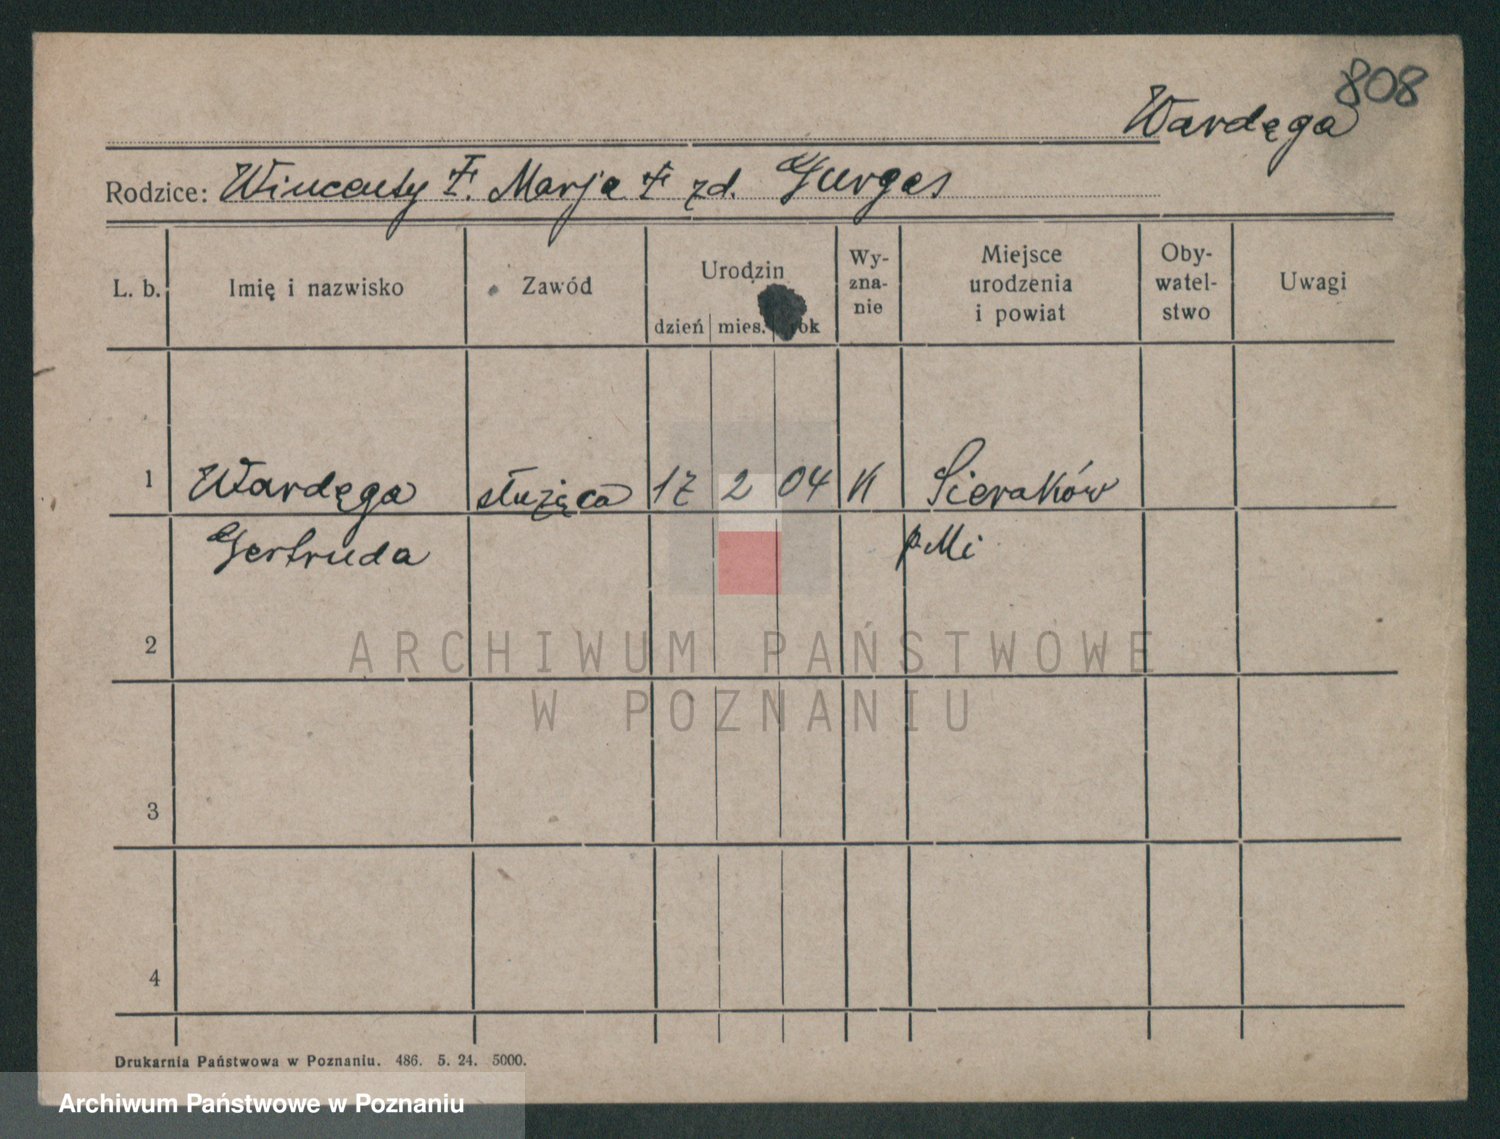 808
Wardęga
Rodzice: Wincenty †. Marja † zd. Gurgas
L. b. Imię i nazwisko Zawód Urodzin dzień mies. rok Wy-zna-nie Miejsce urodzenia i powiat Oby-watel-stwo Uwagi
1 Wardęga służąca 17 2 04 K Sieraków
Gertruda p. Mi
2
3
4
ARCHIWUM PAŃSTWOWE
W POZNANIU
Drukarnia Państwowa w Poznaniu. 486. 5. 24. 5000.
Archiwum Państwowe w Poznaniu